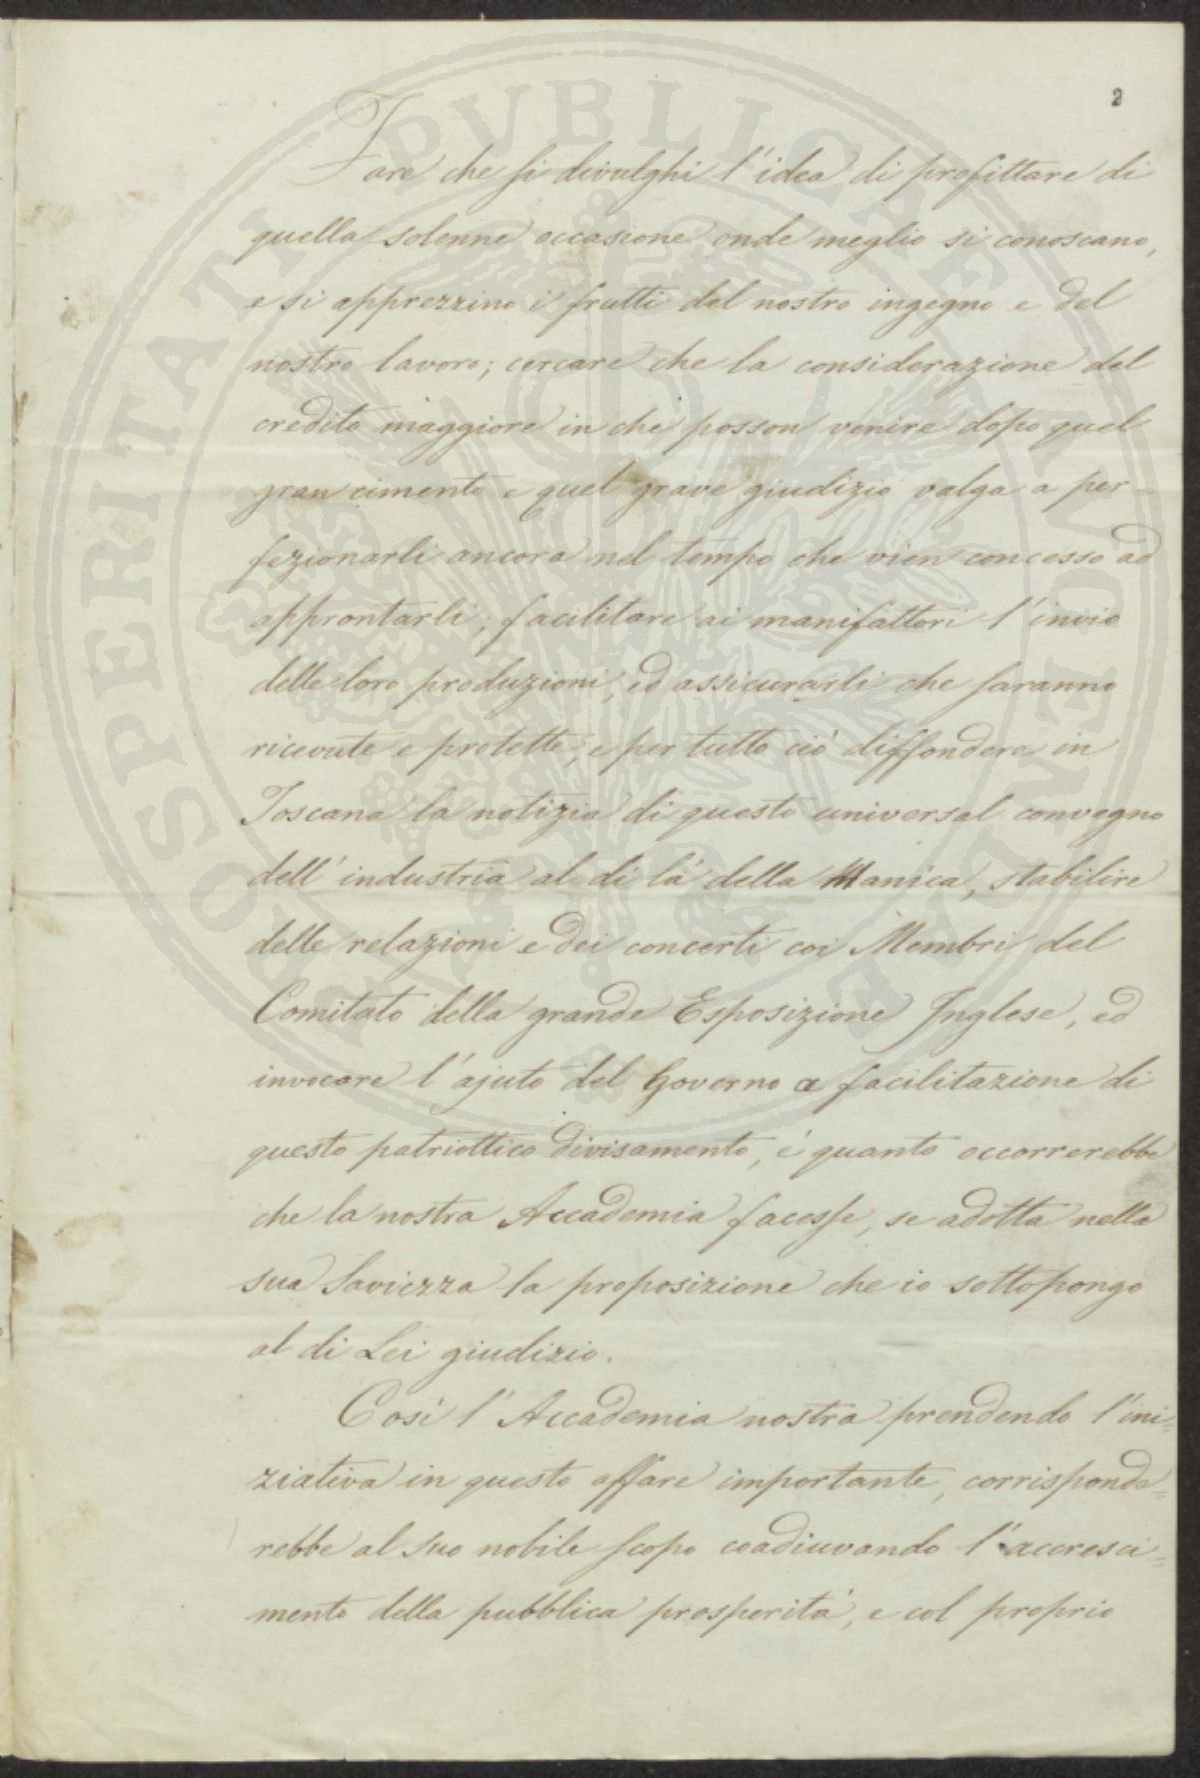 2
Fare che si divulghi l'idea di profittare di
quella solenne occasione onde meglio si conoscano,
e si apprezzino i frutti del nostro ingegno e del
nostro lavoro; cercare che la considerazione del
credito maggiore in che posson venire dopo quel
gran cimento e quel grave giudizio valga a per-
fezionarli ancora nel tempo che vien concesso ad
approntarli; facilitare ai manifattori l'invio
delle loro produzioni, ed assicurarli che saranno
ricevute e protette, e per tutto ciò diffondere in
Toscana la notizia di questo universal convegno
dell'industria al di là della Manica, stabilire
delle relazioni e dei concerti coi Membri del
Comitato della grande Esposizione Inglese, ed
invocare l'ajuto del Governo a facilitazione di
questo patriottico divisamento, è quanto occorrerebbe
che la nostra Accademia facesse, se adotta nella
sua Saviezza la proposizione che io sottopongo
al di Lei giudizio.
Così l'Accademia nostra prendendo l'ini=
ziativa in questo affare importante, corrisponde=
rebbe al suo nobile scopo coadiuvando l'accresci=
mento della pubblica prosperità, e col proprio
PROSPERITATI PUBLICAE